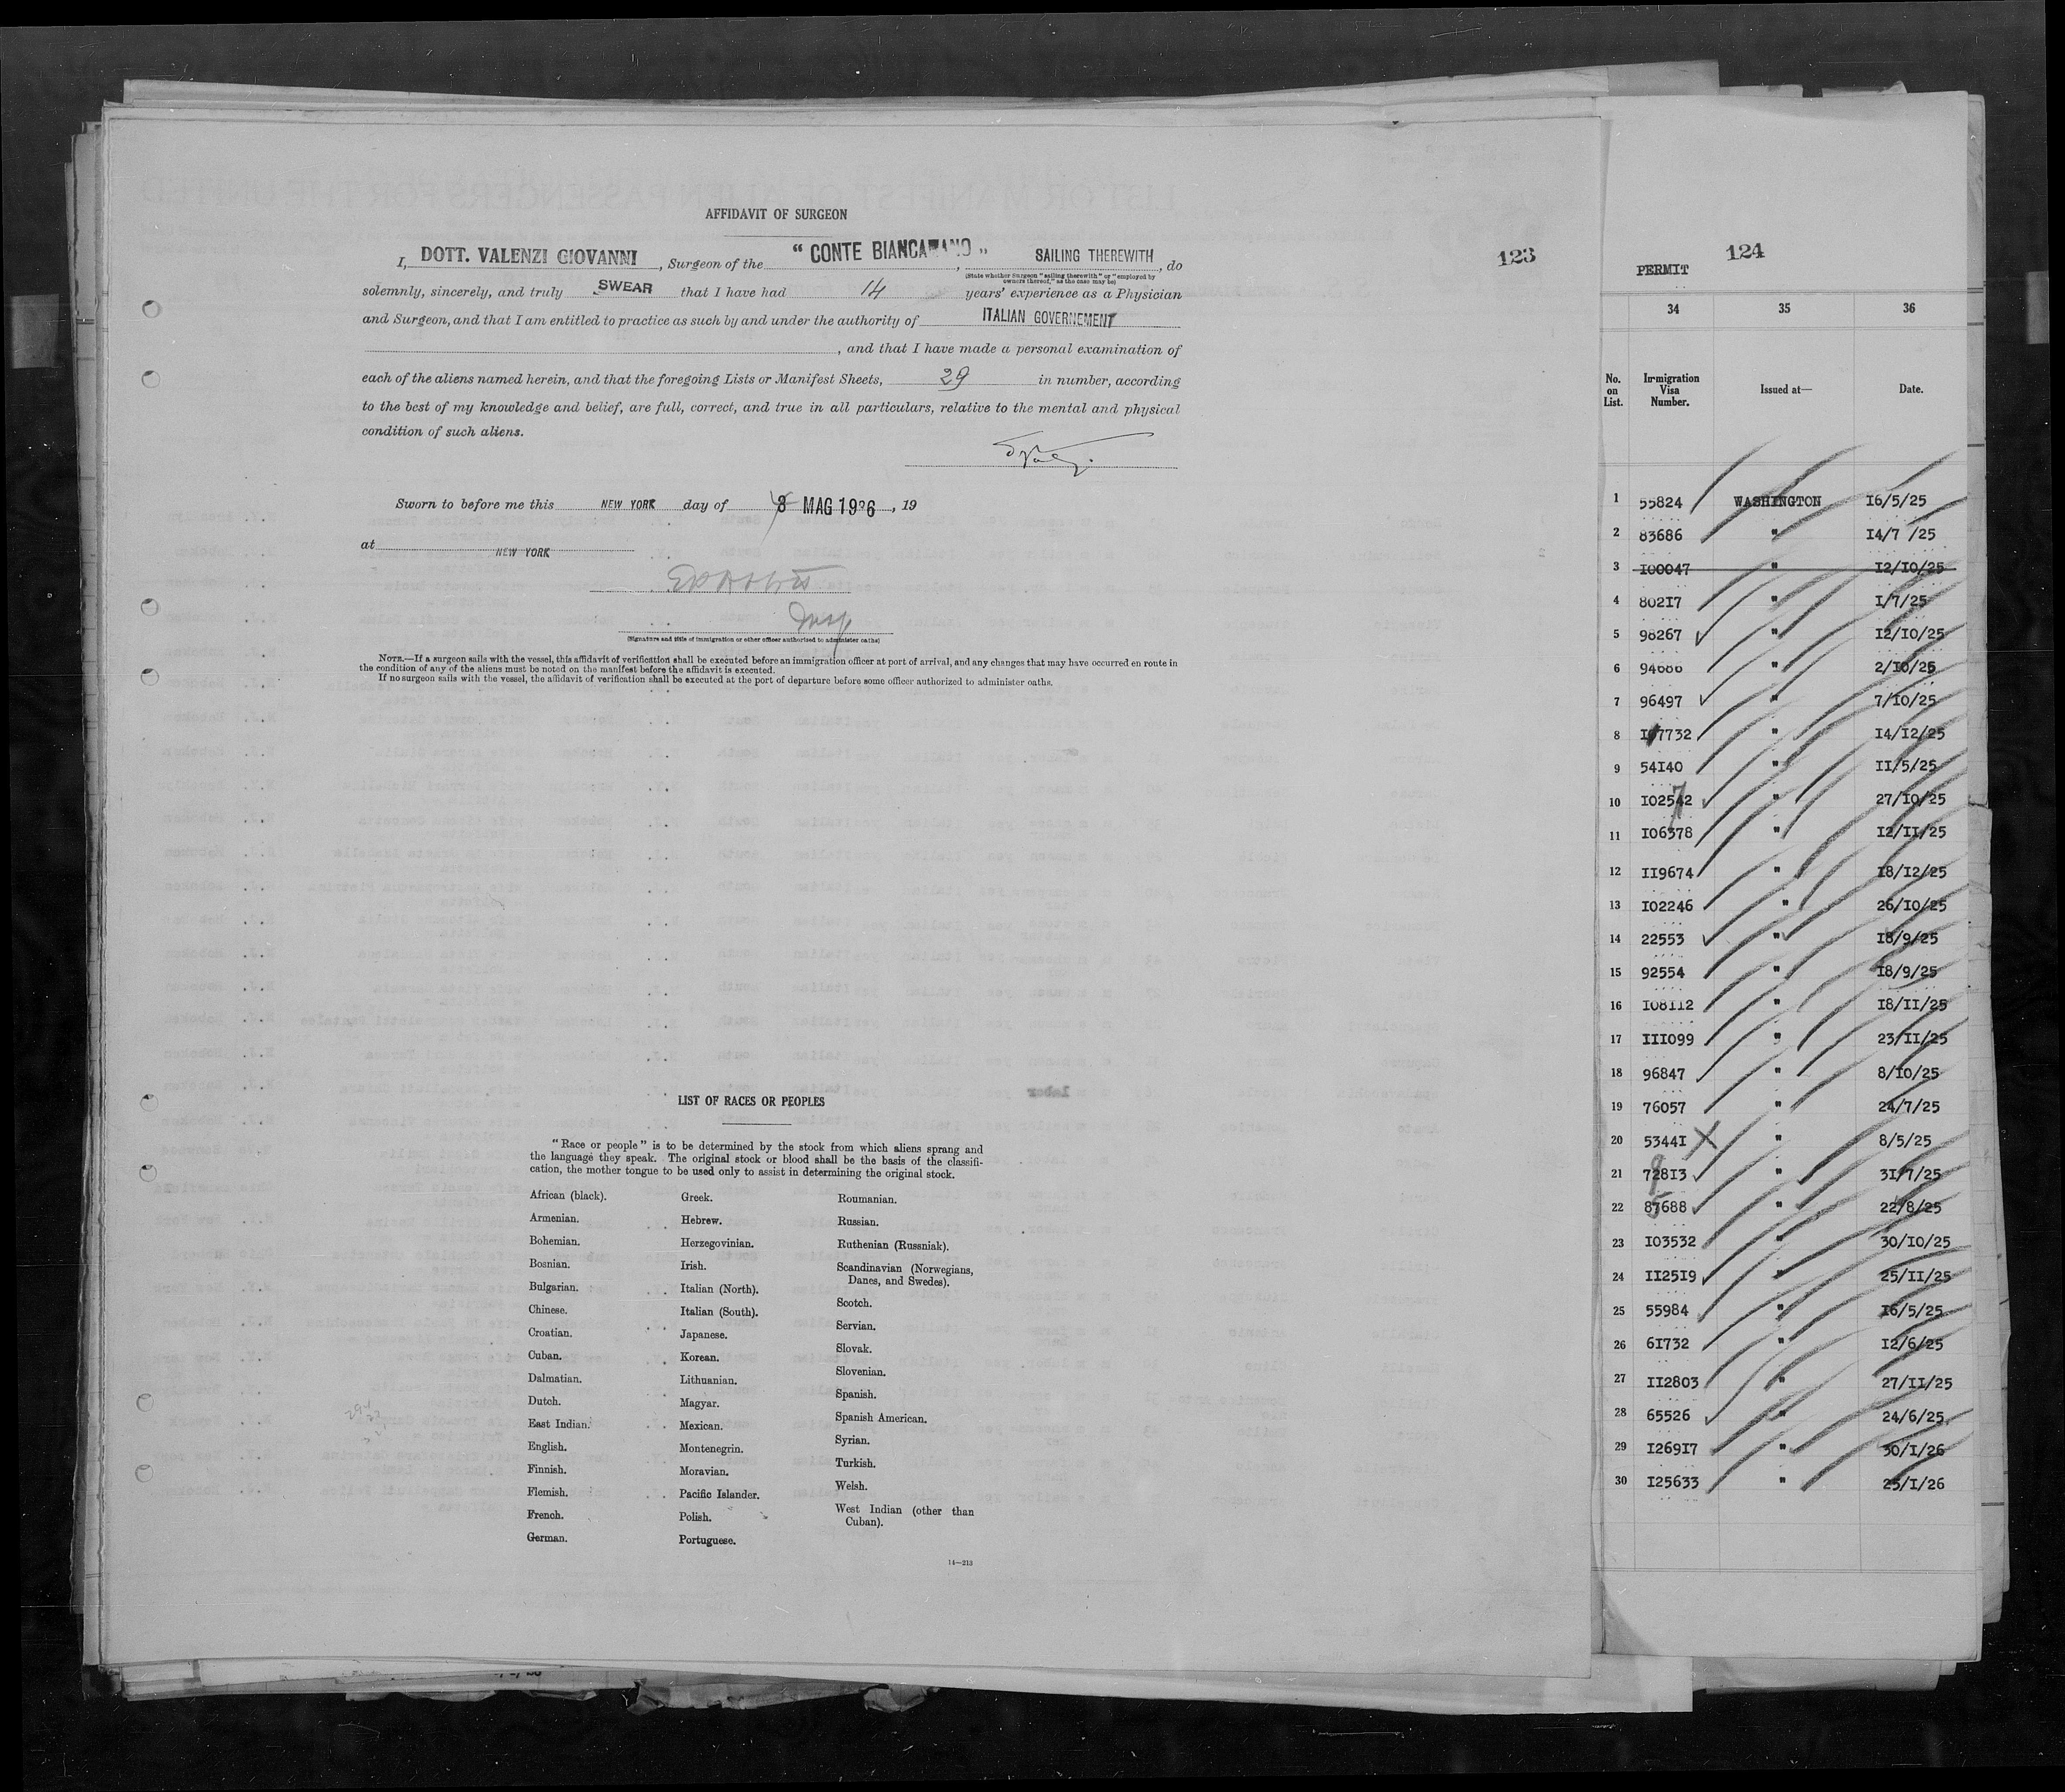 AFFIDAVIT OF SURGEON
I, DOTT. VALENZI GIOVANNI, Surgeon of the " CONTE BIANCAMANO ", SAILING THEREWITH, do
(State whether Surgeon "sailing therewith" or "employed by owners thereof," as the case may be)
solemnly, sincerely, and truly SWEAR that I have had 14 years' experience as a Physician
and Surgeon, and that I am entitled to practice as such by and under the authority of ITALIAN GOVERNEMENT
, and that I have made a personal examination of
each of the aliens named herein, and that the foregoing Lists or Manifest Sheets, 29 in number, according
to the best of my knowledge and belief, are full, correct, and true in all particulars, relative to the mental and physical
condition of such aliens.
Sworn to before me this NEW YORK day of 8 MAG 1926, 19
at NEW YORK
Insp
(Signature and title of immigration or other officer authorized to administer oaths)
NOTE.—If a surgeon sails with the vessel, this affidavit of verification shall be executed before an immigration officer at port of arrival, and any changes that may have occurred en route in
the condition of any of the aliens must be noted on the manifest before the affidavit is executed.
If no surgeon sails with the vessel, the affidavit of verification shall be executed at the port of departure before some officer authorized to administer oaths.
LIST OF RACES OR PEOPLES
"Race or people" is to be determined by the stock from which aliens sprang and
the language they speak. The original stock or blood shall be the basis of the classifi-
cation, the mother tongue to be used only to assist in determining the original stock.
African (black).
Armenian.
Bohemian.
Bosnian.
Bulgarian.
Chinese.
Croatian.
Cuban.
Dalmatian.
Dutch.
East Indian.
English.
Finnish.
Flemish.
French.
German.
Greek.
Hebrew.
Herzegovinian.
Irish.
Italian (North).
Italian (South).
Japanese.
Korean.
Lithuanian.
Magyar.
Mexican.
Montenegrin.
Moravian.
Pacific Islander.
Polish.
Portuguese.
Roumanian.
Russian.
Ruthenian (Russniak).
Scandinavian (Norwegians,
Danes, and Swedes).
Scotch.
Servian.
Slovak.
Slovenian.
Spanish.
Spanish American.
Syrian.
Turkish.
Welsh.
West Indian (other than
Cuban).
14—213
123
124
PERMIT
34 35 36
No. on List. Immigration Visa Number. Issued at— Date.
1 55824 WASHINGTON 16/5/25
2 83686 " 14/7 /25
3 100047 " 12/10/25
4 80217 " 1/7/25
5 98267 " 12/10/25
6 94686 " 2/10/25
7 96497 " 7/10/25
8 117732 " 14/12/25
9 54140 " 11/5/25
10 102542 " 27/10/25
11 106378 " 12/11/25
12 119674 " 18/12/25
13 102246 " 26/10/25
14 22553 " 18/9/25
15 92554 " 18/9/25
16 108112 " 18/11/25
17 111099 " 23/11/25
18 96847 " 8/10/25
19 76057 " 24/7/25
20 53441 X " 8/5/25
21 72813 " 31/7/25
22 87688 " 22/8/25
23 103532 " 30/10/25
24 112519 " 25/11/25
25 55984 " 16/5/25
26 61732 " 12/6/25
27 112803 " 27/11/25
28 65526 " 24/6/25
29 126917 " 30/1/26
30 125633 " 25/1/26